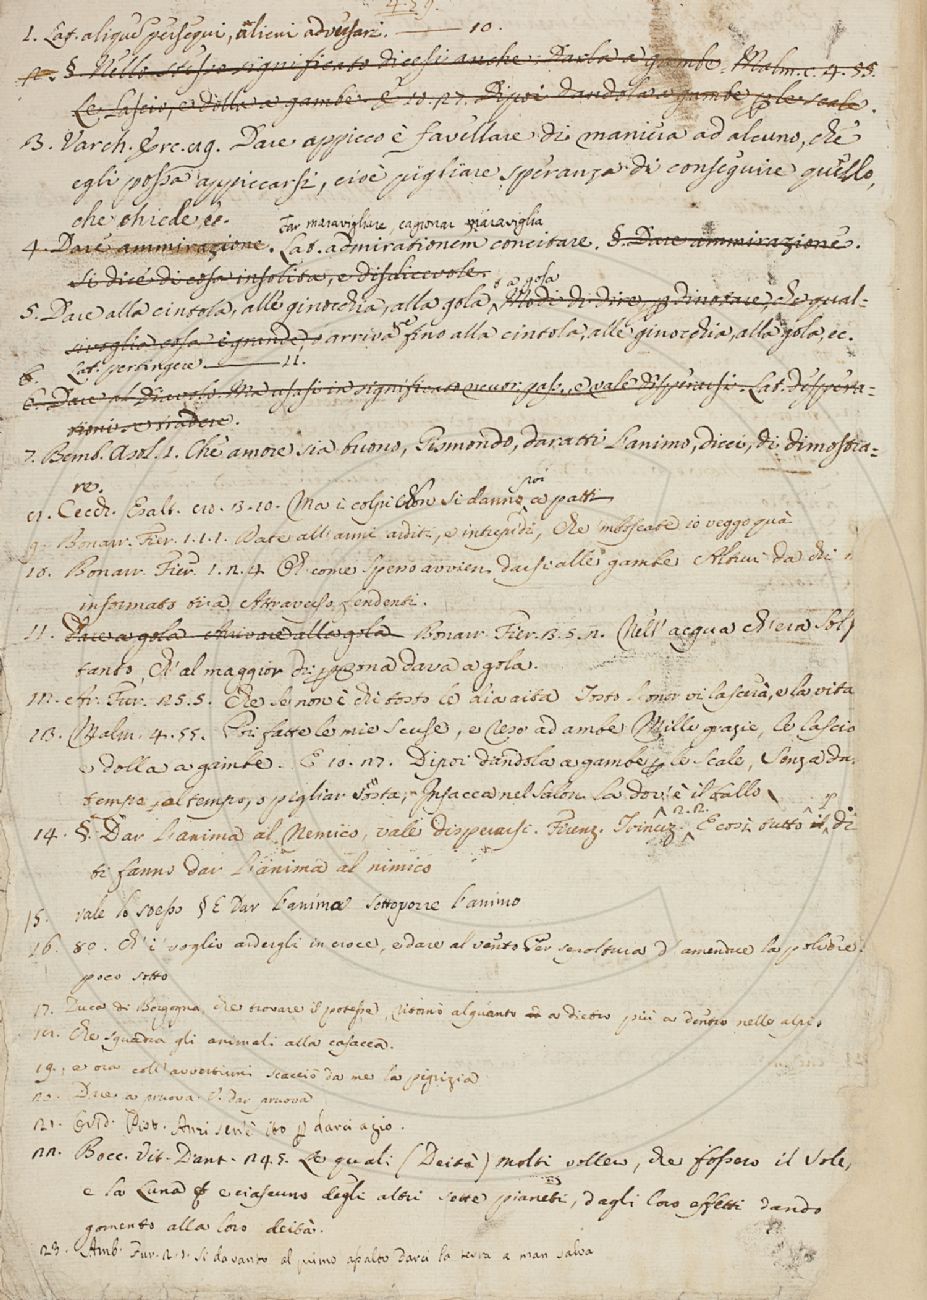 429.
1. Lat. aliquem persequi, alicui adversari. —— 10.
2. § Nello stesso significato dicesi anche. Darla a gambe. Malm. c. 4. 55.
Le lascio, e dolla a gambe. E 10. 27. Dipoi dandola a gambe p le scale.
3. Varch. Erc. 89. Dare appicco è favellare di maniera ad alcuno, che
egli possa appiccarsi, cioè pigliare speranza di conseguire quello,
che chiede, ec.
Far maravigliare, cagionar maraviglia
4. Dare ammirazione. Lat. admirationem concitare. §. Dare ammirazione.
si dice di cosa insolita, e disdicevole.
o a gola
5. Dare alla cintola, alle ginocchia, alla gola, Modi di dire, p dinotare, che qual-
sivoglia cosa è grande, o arriva fino alla cintola, alle ginocchia, alla gola, ec.
Lat. pertingere —— 11.
6. Dare al Diavolo. Ma usasi in significato neutr. pass., e vale disperarsi. Lat. despera-
tioni se tradere.
7. Bemb. Asol. 1. Che amore sia buono, Gismondo, daratti l'animo, dicei, di dimostra-
re.
8. Cecch. Esalt. cr. 3. 10. Ma i colpi non si danno poi a patti
9. Bonarr. Fier. 1. 1. 1. Date all'armi arditi, e intrepidi, Che 'mboscate io veggo quà
10. Bonarr. Fier. 1. 2. 4. E come spesso avvien darsi alle gambe Altrui da chi
informato tira Attraverso fendenti.
11. Dare a gola Arrivare alla gola Bonarr. Fier. 3. 5. 2. Nell'acqua ch'era sol
tanto, Ch'al maggior di persona dava a gola.
12. Ar. Fur. 25. 5. Che se non è chi tosto le dia aita Tosto l'onor vi lascerà, e la vita
13. Malm. 4. 55. Poi fatte le mie scuse, e reso ad ambe Mille grazie, le lascio
e dolla a gambe. E 10. 27. Dipoi dandola a gambe p le scale, Senza dar
tempo al tempo, o pigliar sosta, Insacca nel salon la dov'è il ballo
14. §. Dar l'anima al Nemico, vale disperarsi. Firenz. Trinuz. 2. 2. E così tutto il dì
ti fanno dar l'anima al nimico
15. vale lo stesso § E Dar l'animo sottoporre l'animo
16. 80. Ch'i voglio ardergli in croce, e dare al vento Per sepoltura d'amendue la polvere.
poco sotto
17. Duca di Borgogna, che trovare il potesse, ritornò alquanto a dietro più a dentro nelle alpi.
18. Che squadra gli animali alla casacca.
19. e ora coll'avvertirmi scacciò da me la pigrizia
20. Dare a pruova V. dar pruova
21. Ovid. Pist. Anzi sen'è ito p darci agio.
22. Bocc. Vit. Dant. 245. Le quali (Deità) molti voller, che fossero il Sole,
e la Luna e ciascuno degli altri sette pianeti, dagli loro effetti dando
gomento alla loro deità.
23. Amb. Fur. 2. 1. si davanto al primo assalto darci la terra a man salva